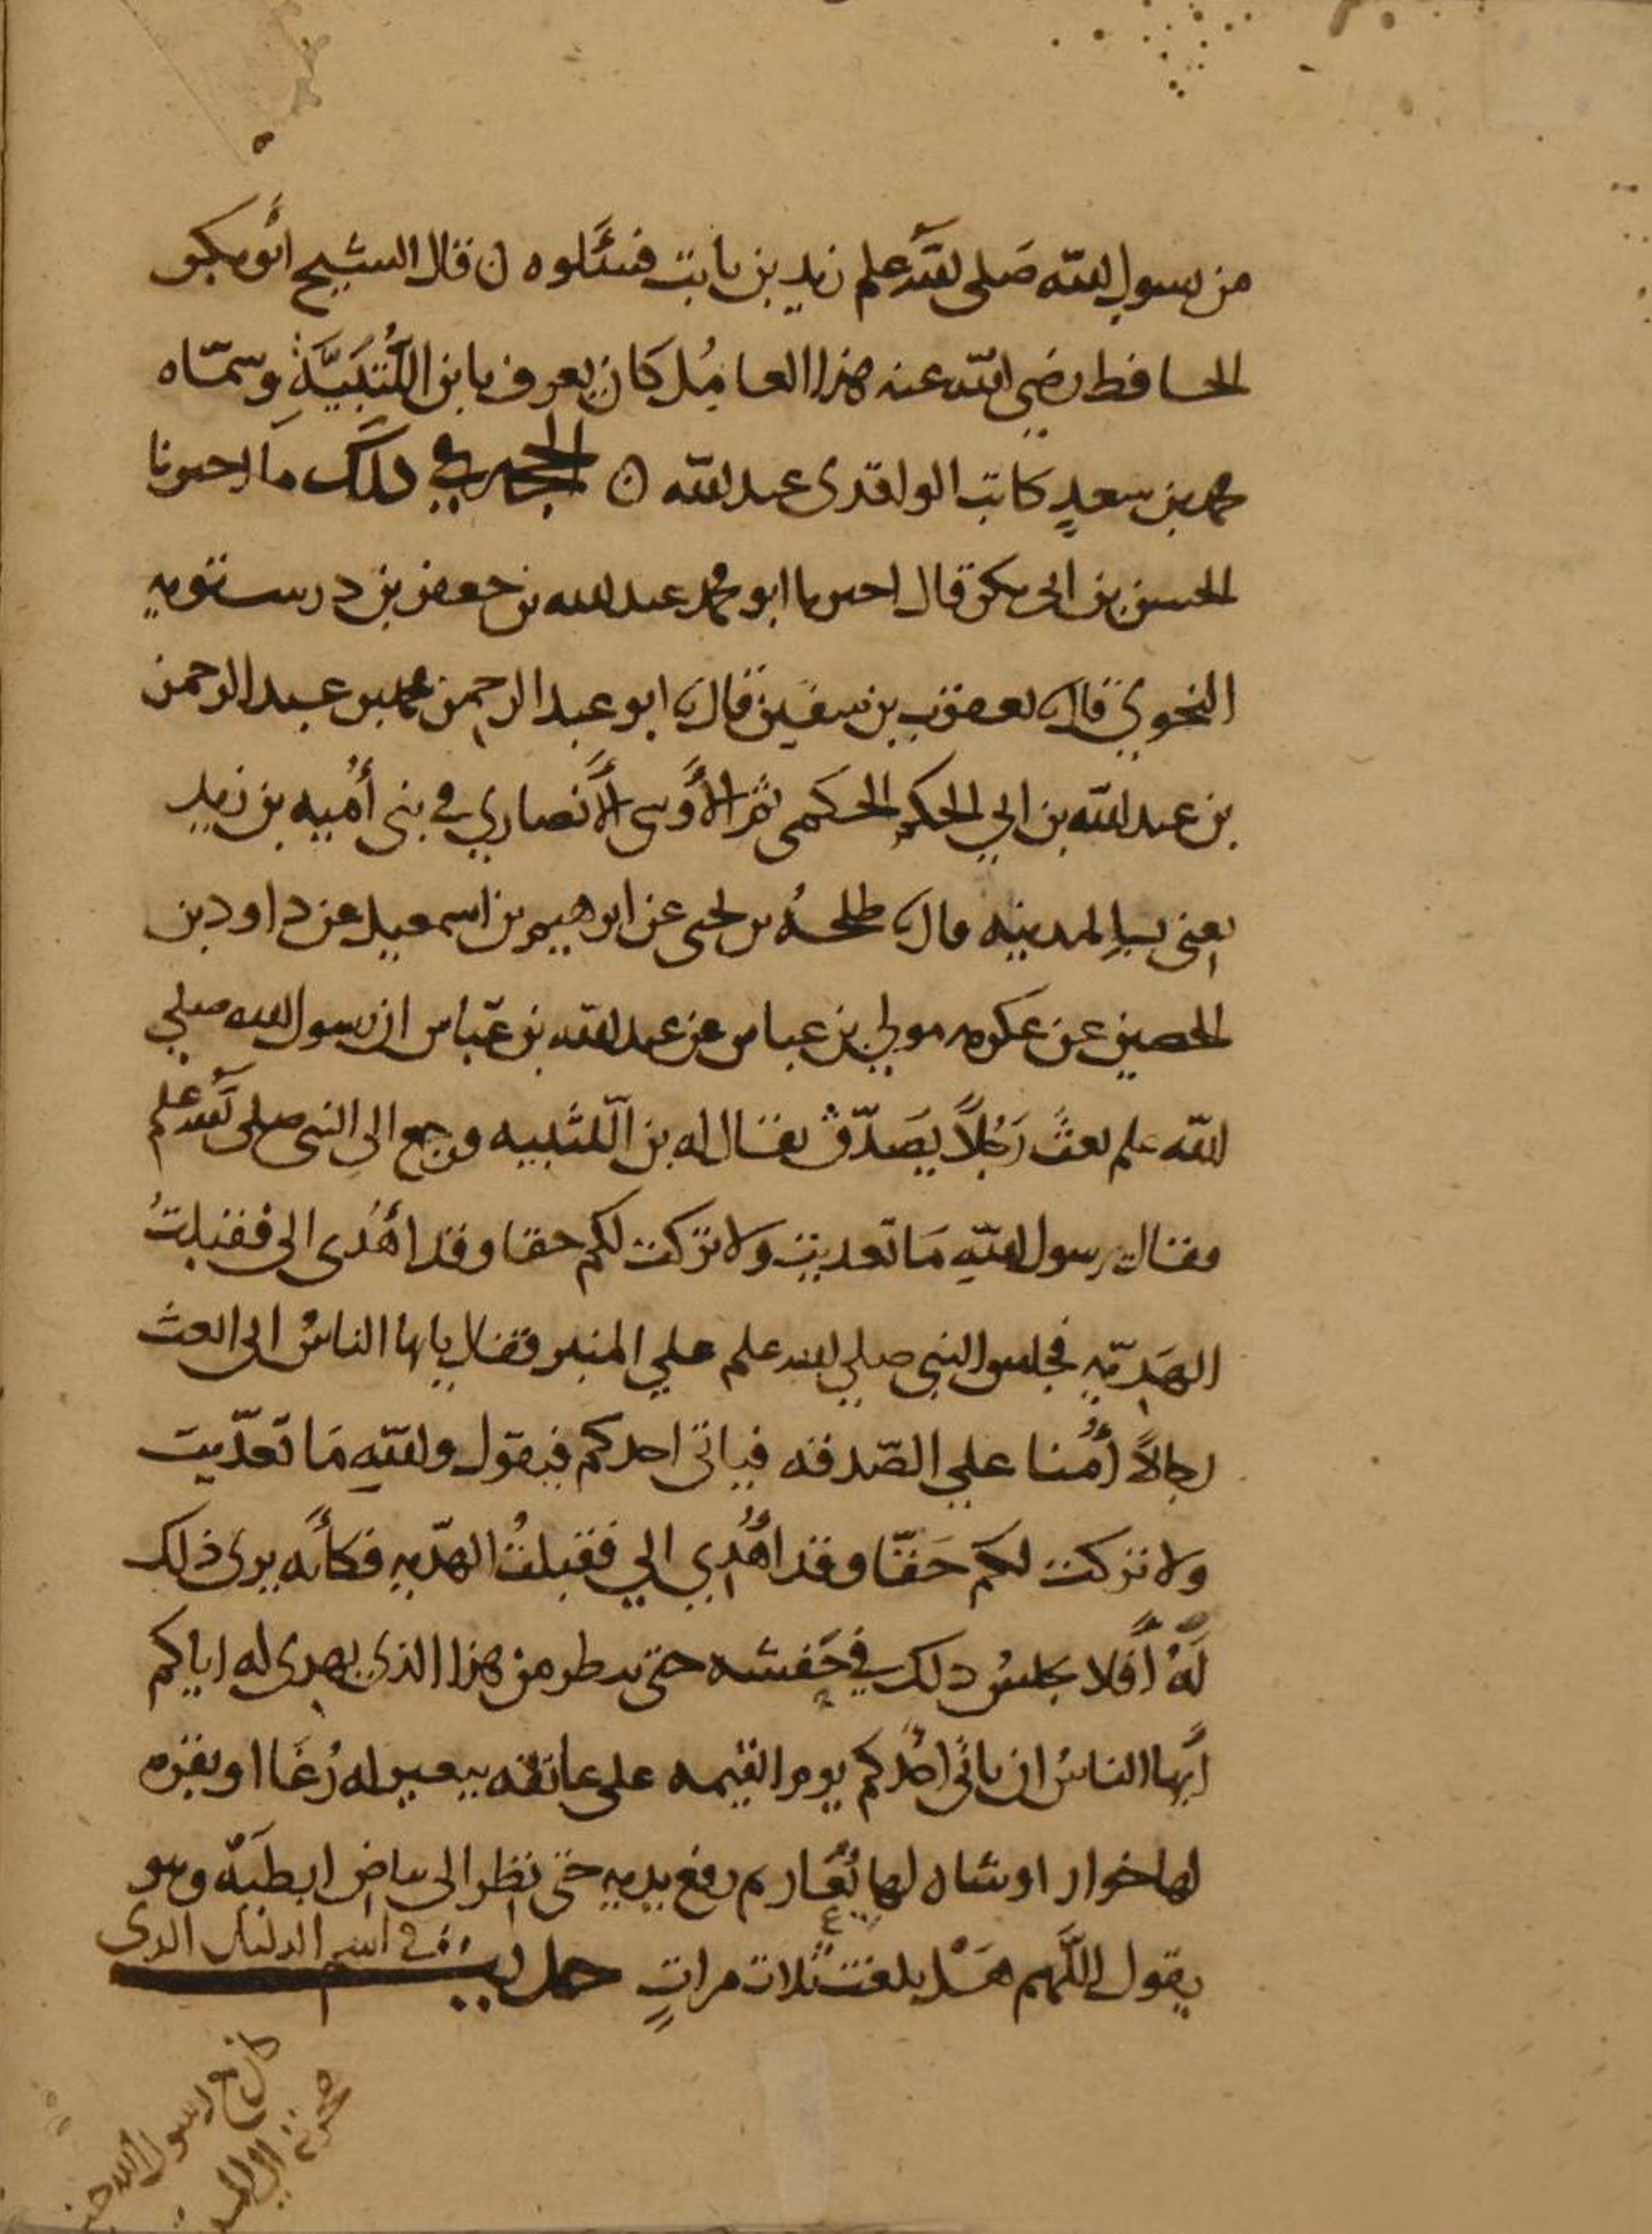 من رسول الله صَلى الله علم زيد بن ثابت فسَئَلوه ن قال الشيخ أبو بكر
الحافط رضي الله عنه هذا العامُل كان يعرف بابن اللُّتْبَيَّة وسمّاه
محمد بن سعدٍ كاتب الواقدى عبد الله ن الحجه في ذلك مَا احبرنا
الحسن بن ابى بكر قال احبرنا ابو محمد عبد الله بن جعفر بن درستويه
النحوي قال نا يعقوب بن سفين قال نا ابو عبد الرحمن محمد بن عبد الرحمن
بن عبد الله بن ابي الحكم الحكمى ثم الأَوسى الأَنصاري في بنى أُميه بن زيد
يعنى بالمدينه قال نا طلحهُ بن يحيى عن ابرهيم بن اسمعيل عن داود بن
الحصين عن عكرمه مولي بن عباس عن عبد الله بن عبّاس ان رسول الله صلي
الله علم بعث رَجُلاً يُصَدّق يقال له بن اللتبيه فرجع الى النبى صلى الله علم
فقال رسول الله مَا تعديت ولا تركت لكم حقا وقد أُهْدى الى فقبلتُ
الهَديّه فجلس النبى صلي الله علم علي المنبر فقال يايها الناسُ انى ابعث
رجالاً أُمُنا علي الصّدقه فياتى احدكم فيقول والله مَا تعدّيت
ولا تركت لكم حَقّا وقد أُهْدِي الي فقبلتُ الهدّيه فكأنه يرى ذلك
لَهُ أَفلا يجلسُ ذلك في حَفشه حتى ينطر من هذا الذى يهدى له اياكم
أيها الناسُ ان ياتى احدُكم يوم القيمه على عاتقه ببعير له رُغَا او بقره
لها خوار او شاه لها يُعَار ثم رفع يديه حتى نظر الى بياض ابطَيه وهو
يقول اللّهم هَل بلغت ثلاث مراتٍ حديث في اسم الدليل الدى
كان مع رسول الله حين
هجرته الى المدينة